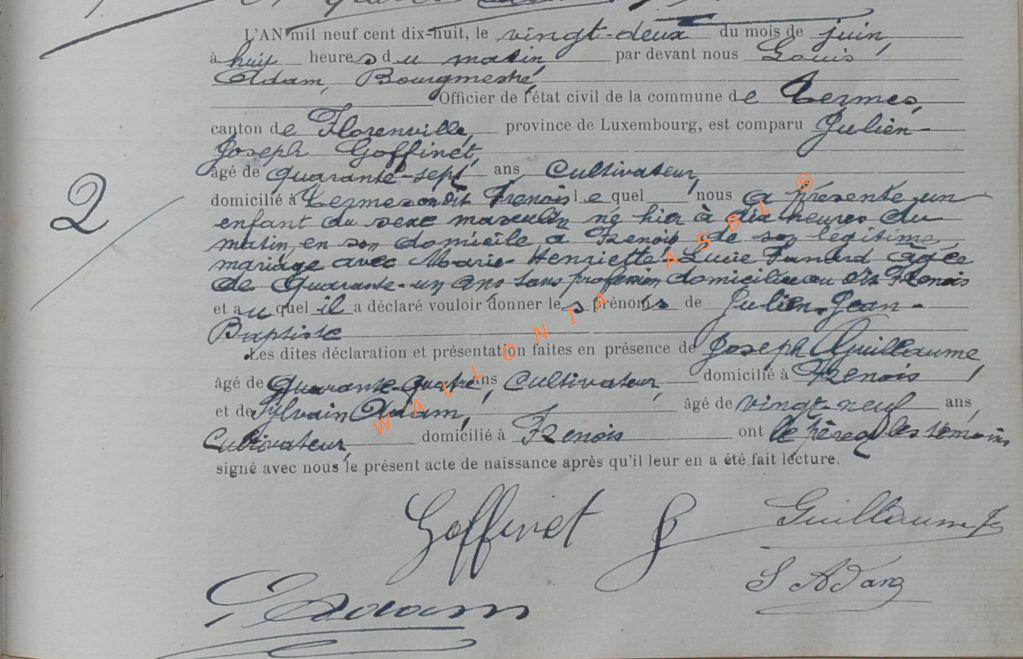 L'AN mil neuf cent dix-huit, le vingt-deux du mois de juin,
à huit heures du matin par devant nous Louis
Adam, Bourgmestre,
Officier de l'état civil de la commune de Termes,
canton de Florenville, province de Luxembourg, est comparu Julien-
Joseph Goffinet,
âgé de quarante-sept ans Cultivateur,
domicilié à Termes au dit Frenois lequel nous a présenté un
enfant du sexe masculin né hier à dix heures du
matin, en son domicile à Frenois de son légitime
mariage avec Marie-Henriette-Lucie âgée
de quarante-un ans sans profession domiciliée au dit Frenois
et auquel il a déclaré vouloir donner les prénoms de Julien-Jean-
Baptiste
Les dites déclaration et présentation faites en présence de Joseph Guillaume
âgé de quarante-quatre ans, Cultivateur, domicilié à Frenois,
et de Sylvain Adam, âgé de vingt-neuf ans,
Cultivateur, domicilié à Frenois ont le père et les témoins
signé avec nous le présent acte de naissance après qu'il leur en a été fait lecture.
2
Goffinet Guillaume J
S Adam
L Adam
WALLONIA ASBL ®